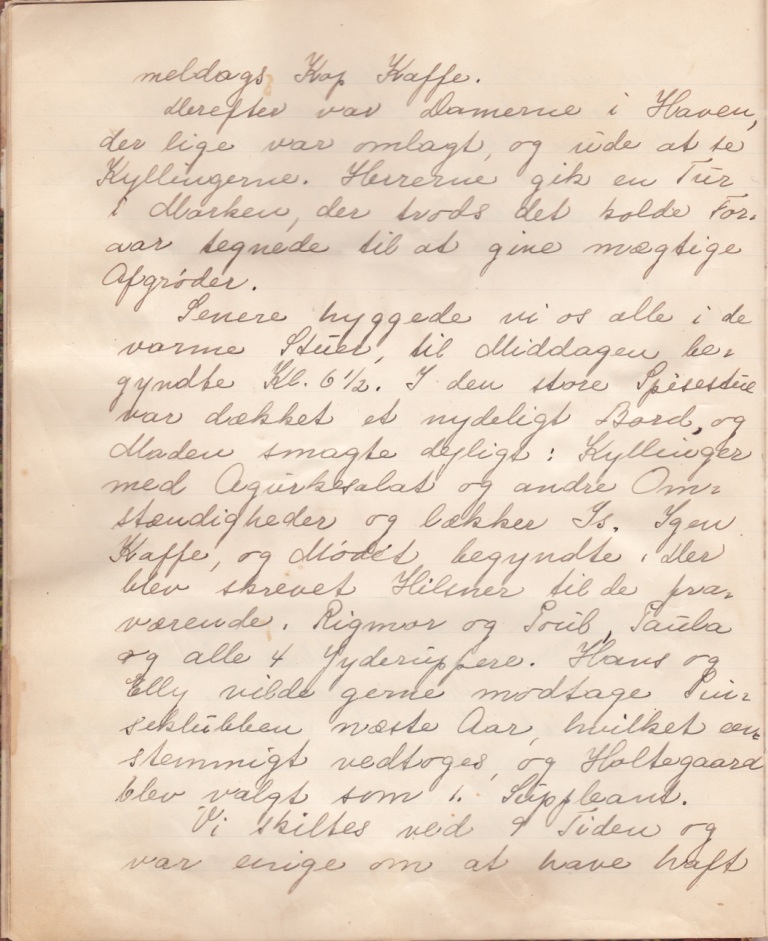 meldags Kop Kaffe.
Derefter var Damerne i Haven,
der lige var omlagt, og ude at se
Kyllingerne. Herrerne gik en Tur
i Marken, der trods det kolde For-
aar tegnede til at give mægtige
Afgrøder.
Senere hyggede vi os alle i de
varme Stuer, til Middagen be-
gyndte Kl. 6½. I den store Spisestue
var dækket et nydeligt Bord, og
Maden smagte dejligt: Kyllinger
med Agurkesalat og andre Om-
stændigheder og lækker Is. Igen
Kaffe, og Mødet begyndte. Der
blev skrevet Hilsner til de fra-
værende. Rigmor og Poul, Paula
og alle 4 Jyderuppere. Hans og
Elly vilde gerne modtage Pin-
seklubben næste Aar, hvilket een-
stemmigt vedtoges, og Holtegaard
blev valgt som 1. Suppleant.
Vi skiltes ved 9 Tiden og
var enige om at have haft